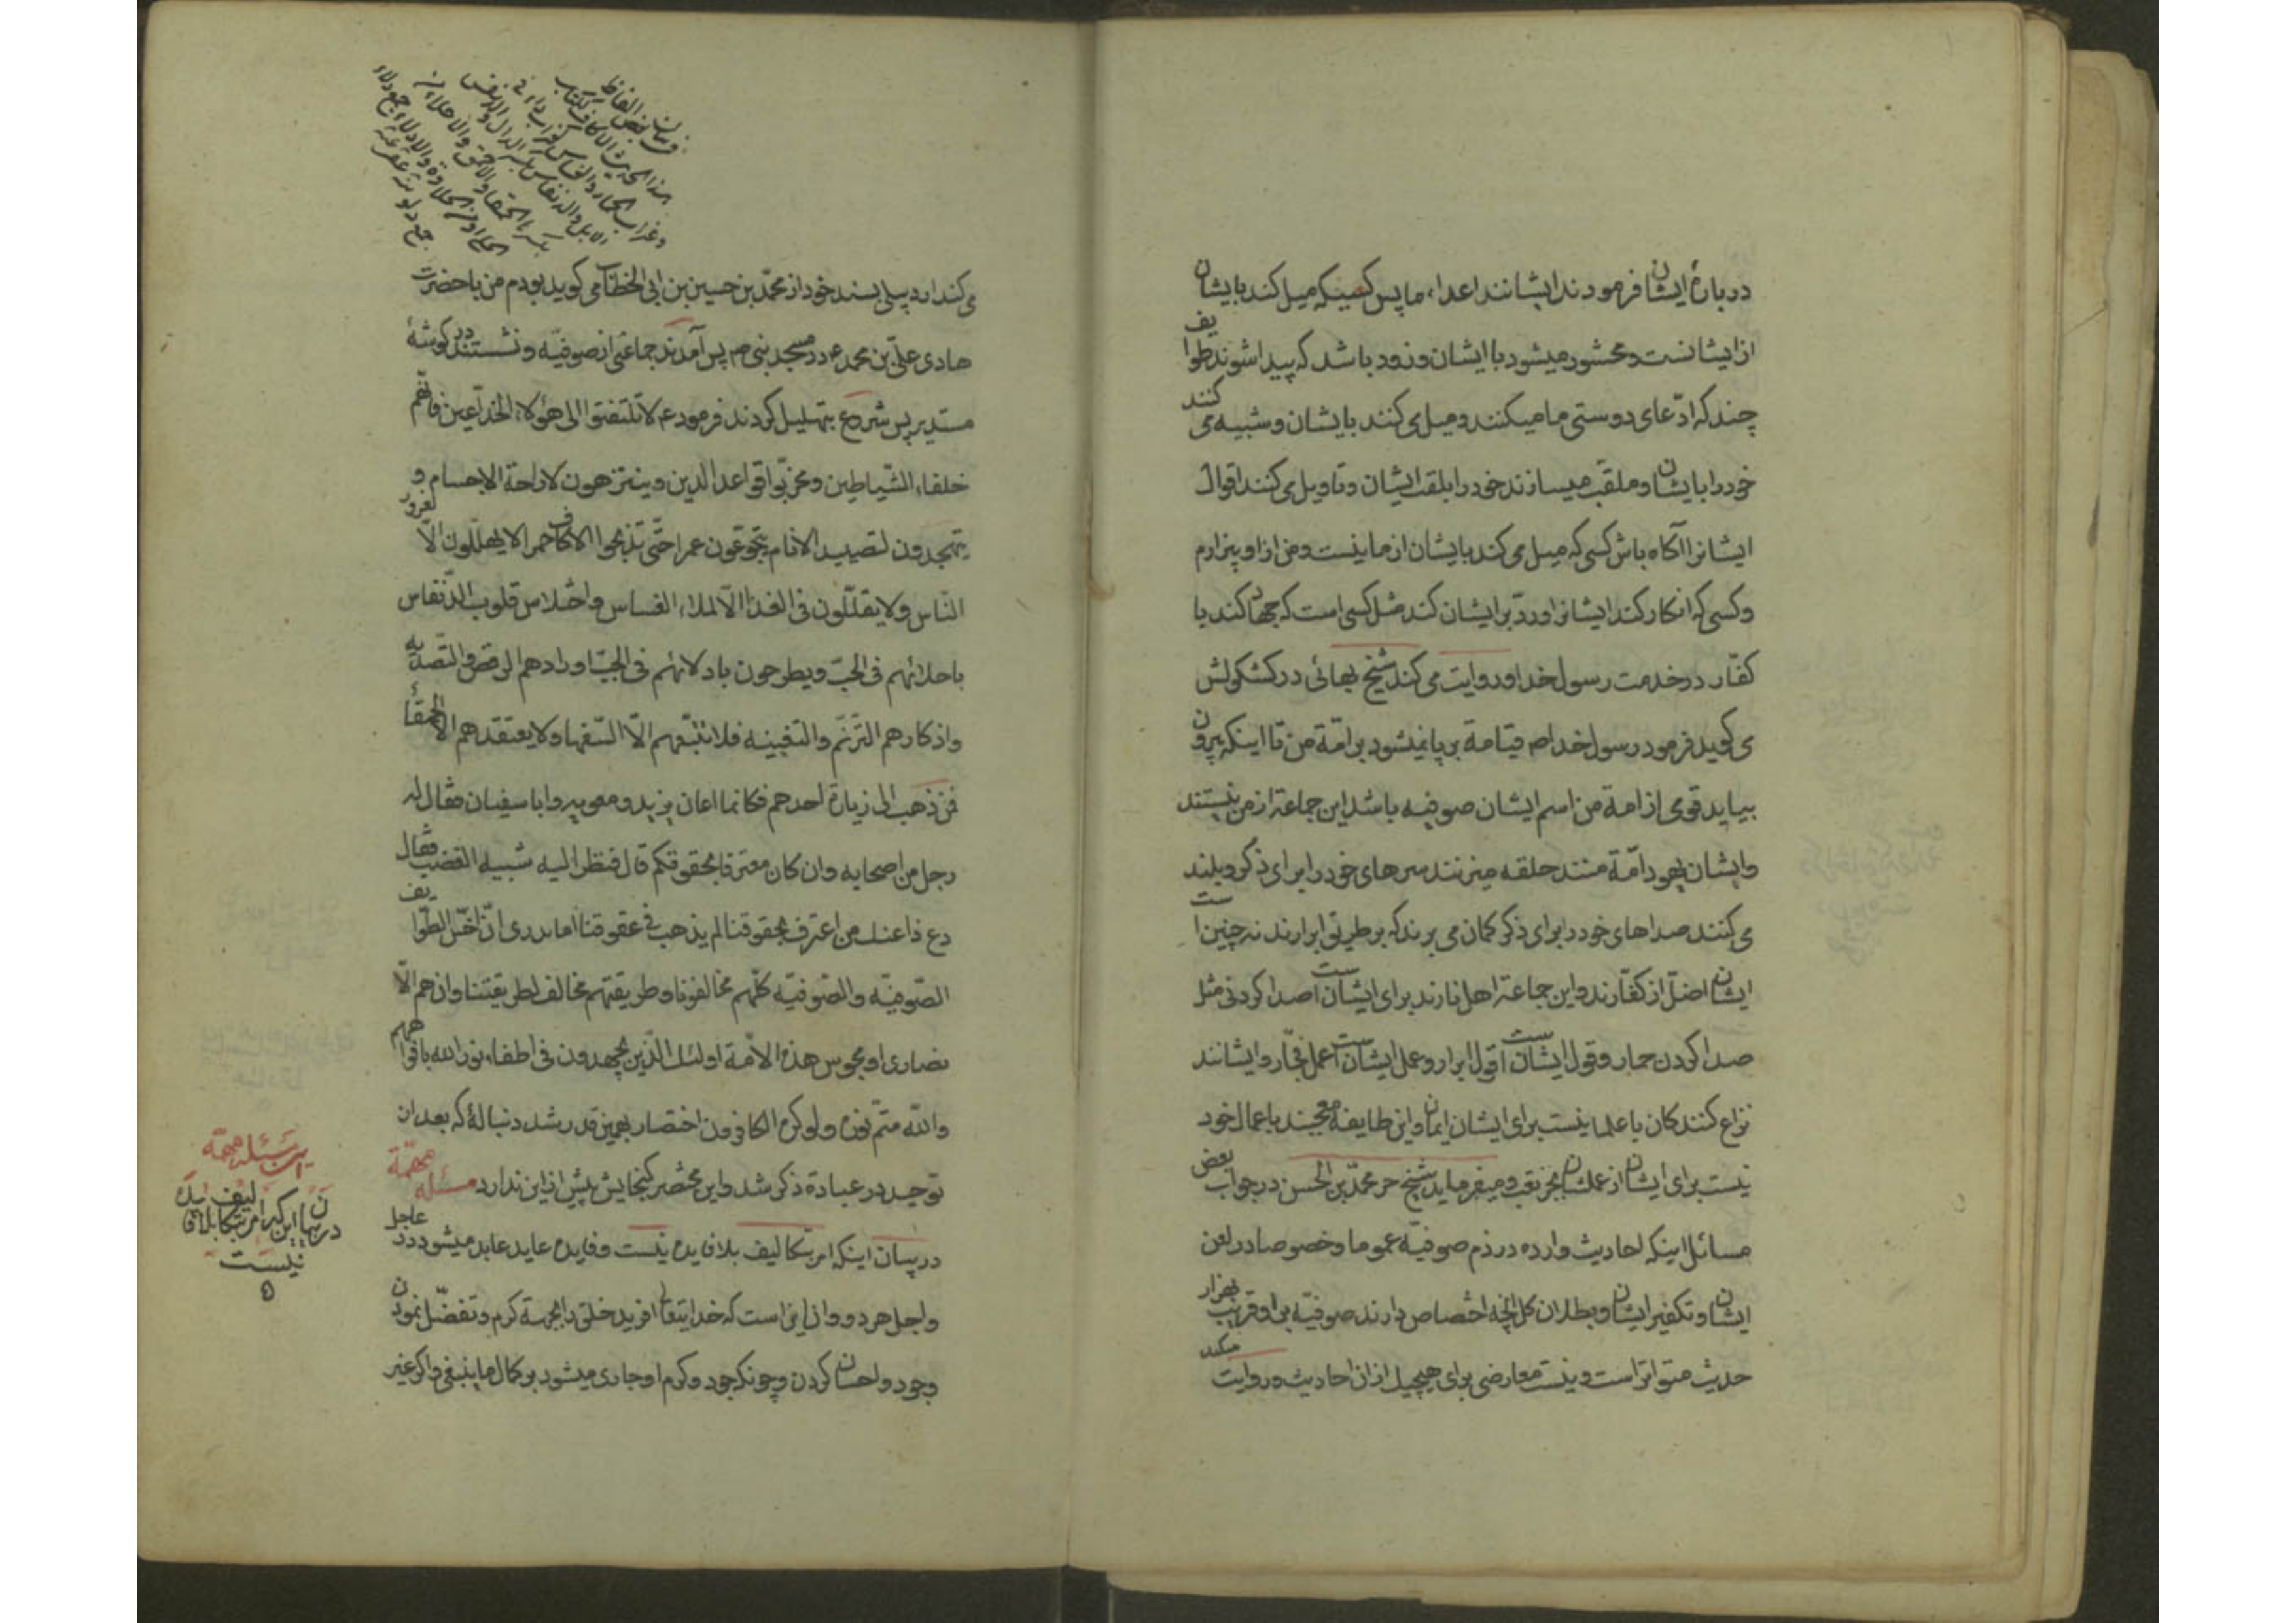 درباره ایشان فرمودند ایشانند اعداء ما پس کسیکه میل کند بایشان
از ایشانست و محشور میشود با ایشان و زود باشد که پیدا شوند طوایف
چند که ادّعای دوستی ما میکنند و میل می کنند بایشان و شبیه می کنند
خود را بایشان و ملقّب میسازند خود را بلقب ایشان و تاویل می کنند اقوال
ایشانرا آگاه باش کسی که میل می کند بایشان از ما نیست و من از او بیزارم
و کسی که انکار کند ایشانرا و ردّ بر ایشان کند مثل کسی است که جهاد کند با
کفّار در خدمت رسول خدا و روایت می کند شیخ بهائی در کشکولش
می گوید فرمود رسول خدا ص قیامة بر پا نمیشود بر امّة من تا اینکه بیرون
بیاید قومی از امة من اسم ایشان صوفیه باشد این جماعة از من نیستند
و ایشان یهود امّة منند حلقه میزنند سرهای خود را برای ذکر و بلند
می کنند صداهای خود را برای ذکر گمان می برند که بر طریق ابرارند نه چنین است
ایشان اضلّ از کفّارند و این جماعة اهل نارند برای ایشان است صدا کردنی مثل
صدا کردن حمار و قول ایشان است قول ابرار و عمل ایشان است عمل فجّار و ایشانند
نزاع کنندکان با علما نیست برای ایشان ایمان و این طایفه معجبند باعمال خود
نیست برای ایشان از عملشان بجز تعب و میفرماید شیخ حر محمّد بن الحسن در جواب بعض
مسائل اینکه احادیث وارده در ذم صوفیّه عموما و خصوصا در لعن
ایشان و تکفیر ایشان و بطلان کل آنچه اختصاص دارند صوفیّه بر او قریب بهزار
حدیث متواتر است و نیست معارضی برای هیچیک از ان احادیث و روایت میکند
می کند اردبیلی بسند خود از محمّد بن حسین بن ابی الخطّاب می گوید بودم من با حضرت
هادی علیّ بن محمد ع در مسجد نبی ص پس آمدند جماعتی از صوفیّه و نشستند در گوشهٔ
مستدیر پس شروع بتهلیل کردند فرمود ع لا تلتفتوا الی هؤلاء الخدّاعین فانّهم
خلفاء الشّیاطین و مخرّبوا قواعد الدین و یتزهون لاراحة الاجسام و
یتهجدون لتصیید الانام یتجوّعون عمرا حتّی یذبحوا الاکاف حمرا لا یهلّلون الّا لغرور
النّاس و لا یقلّلون فی الغذا الّا لملاء العساس و اختلاس قلوب الدّنفاس
باحلائهم فی الحبّ و یطرحون بادلائهم فی الجبّ اورادهم الرقص و التصدیه
و اذکارهم الترنّم و التغنیه فلا یتّبعهم الّا السّفها و لا یعتقدهم الّا الحمقاء
فمن ذهب الی زیارة احدهم فکانما اعان یزید و معویه و ابا سفیان فقال له
رجل من اصحابه و ان کان معترفا بحقوقکم قال فنظر الیه شبیه الغضب فقال
دع ذا عنك من اعترف بحقوقنا لم یذهب فی عقوقنا اما تدری انّ اخسّ الطوایف
الصّوفیّه و الصّوفیّه کلّهم مخالفونا و طریقتهم مخالف لطریقتنا و ان هم الّا
نصاری او مجوس هذه الامّة اولئك الّذین یجهدون فی اطفاء نور الله بافواههم
و الله متمّ نوره و لو کره الکافرون اختصار بهمین قدر شد دنبالهٔ که بعد ان
توحید در عبادة ذکر شد و این مختصر گنجایش بیش از این ندارد مسئله مهمّة
در بیان اینکه امر بتکالیف بلا فایده نیست و فایده عاید عابد میشود در عاجل
و اجل هر دو و ان این است که خدایتعالی افرید خلق را بجهة کرم و تفضّل نمودن
وجود و احسان کردن و چونکه جود و کرم او جاری میشود بر کمال ما ینبغی و اگر غیر
این مسئله مهمّه
در بیان این که امر بتکالیف بلا فایده
نیست